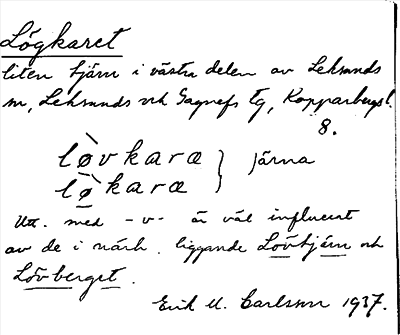 Lögkaret
liten tjärn i västra delen av Leksands
sn, Leksands och Gagnefs tg, Kopparbergs l.
8.
lòvkaræ } Järna
lø̀karæ
Utt. med -v- är väl influerat
av de i närh. liggande Lövtjärn och
Lövberget.
Erik M. Carlsson 1937.